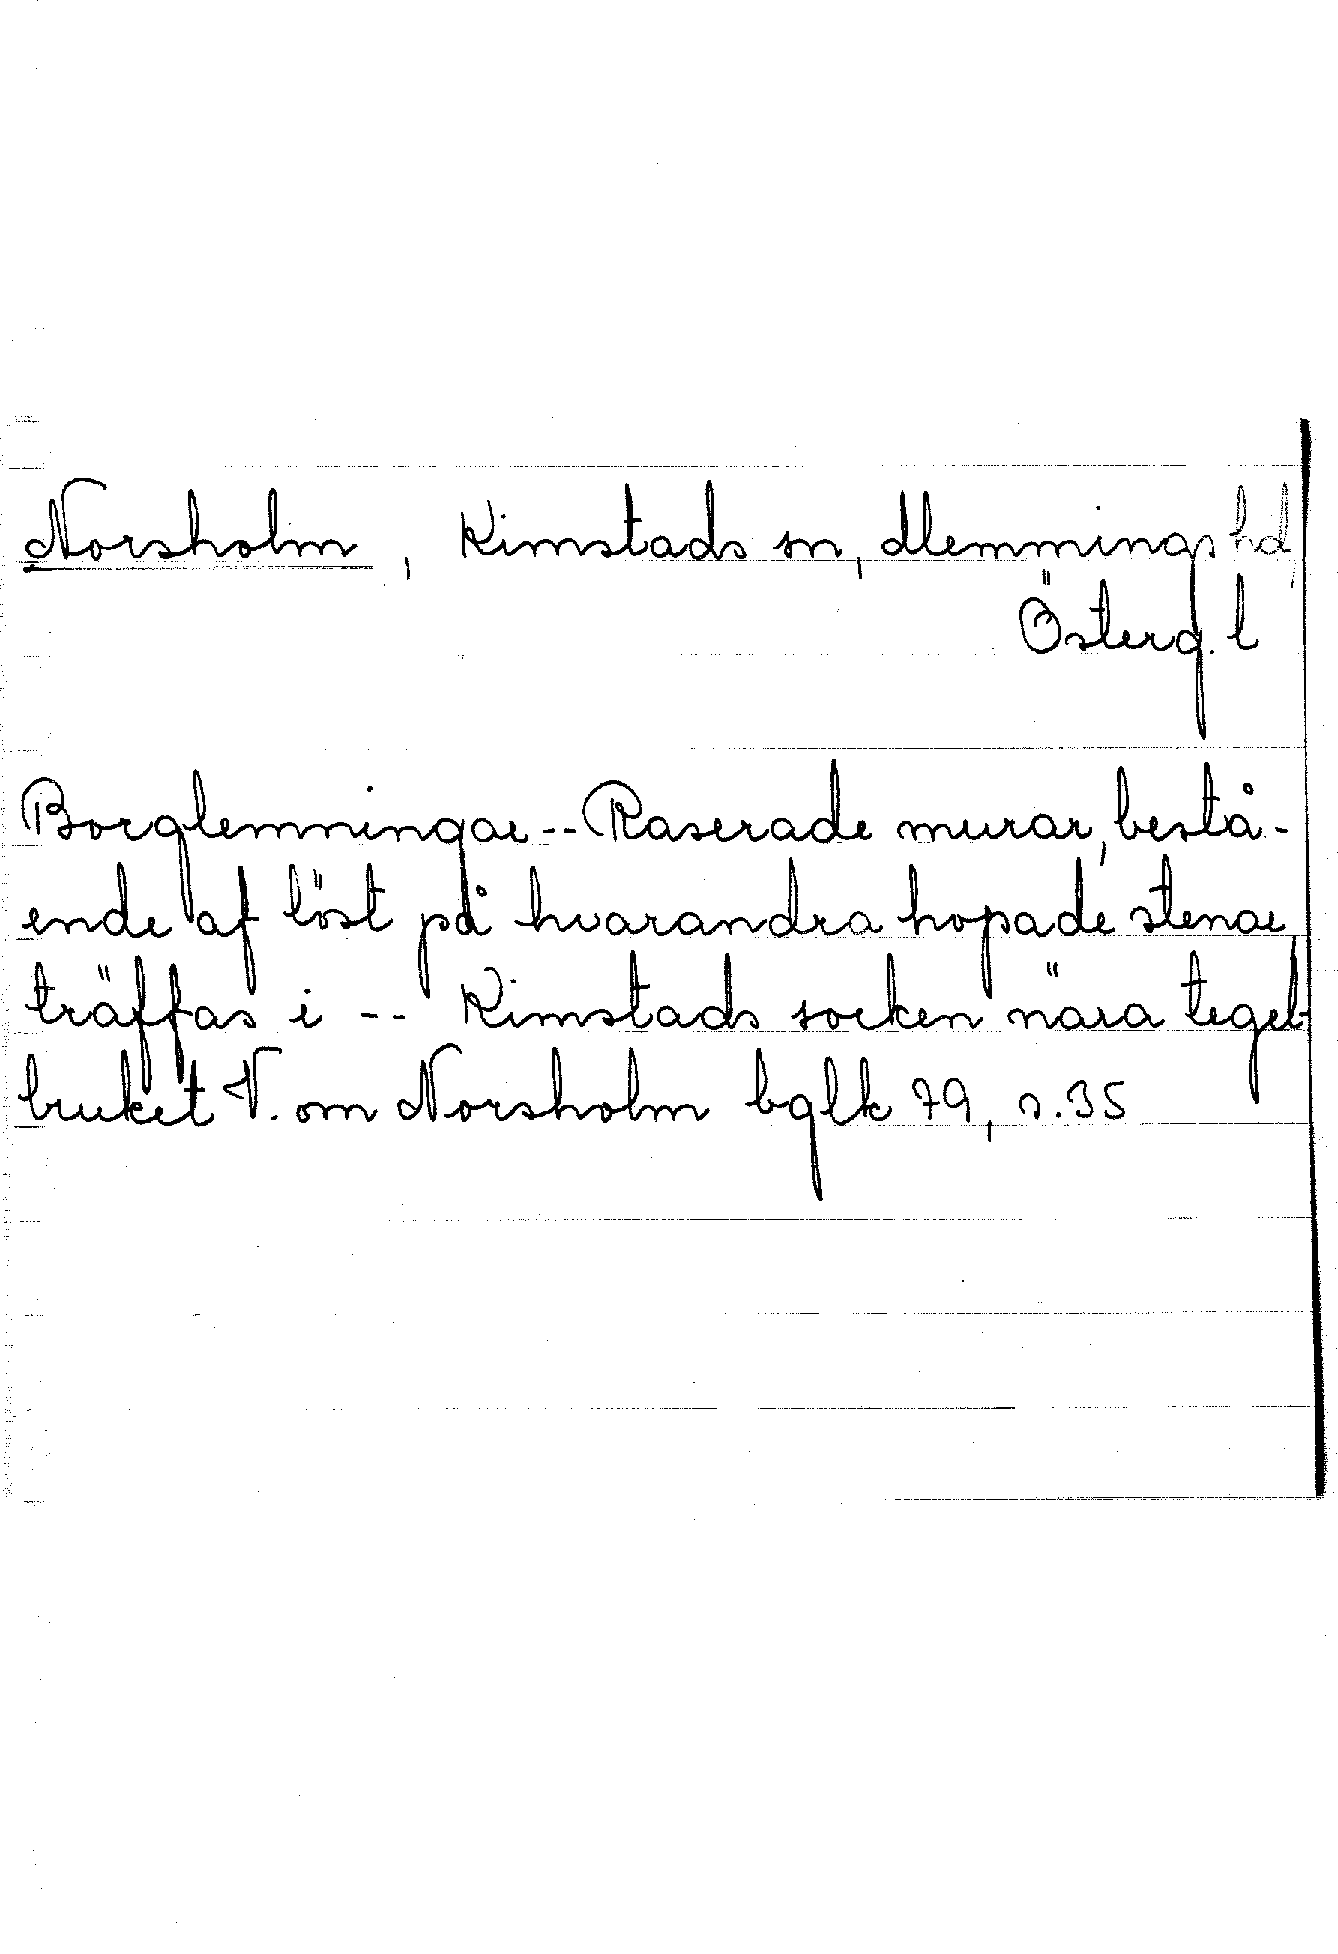 Norsholm, Kimstads sn, Memmings hd,
Österg. l
Borglemningar -- Raserade murar, bestå-
ende af löst på hvarandra hopade stenar
träffas i -- Kimstads socken nära tegel-
bruket V. om Norsholm bglk 79, s.35